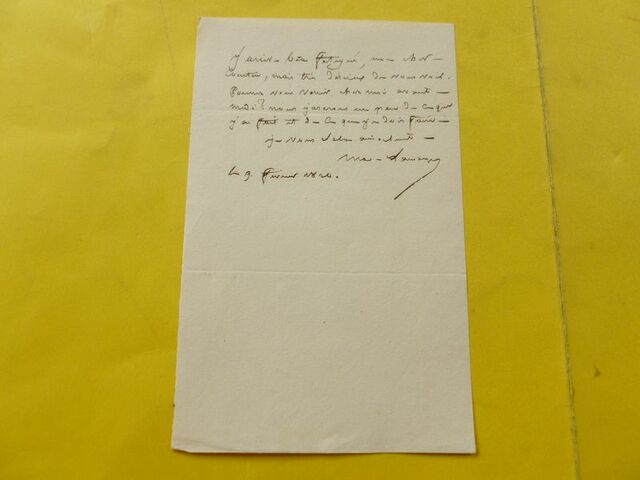 J'arrive bien fatigué, mon cher
mais très désireux de vous voir.
Pouvez vous venir chez moi avant
midi? nous jaserons un peu de ce que
j'ai fait et de ce que je dois faire.
je vous salue
le 9. Février